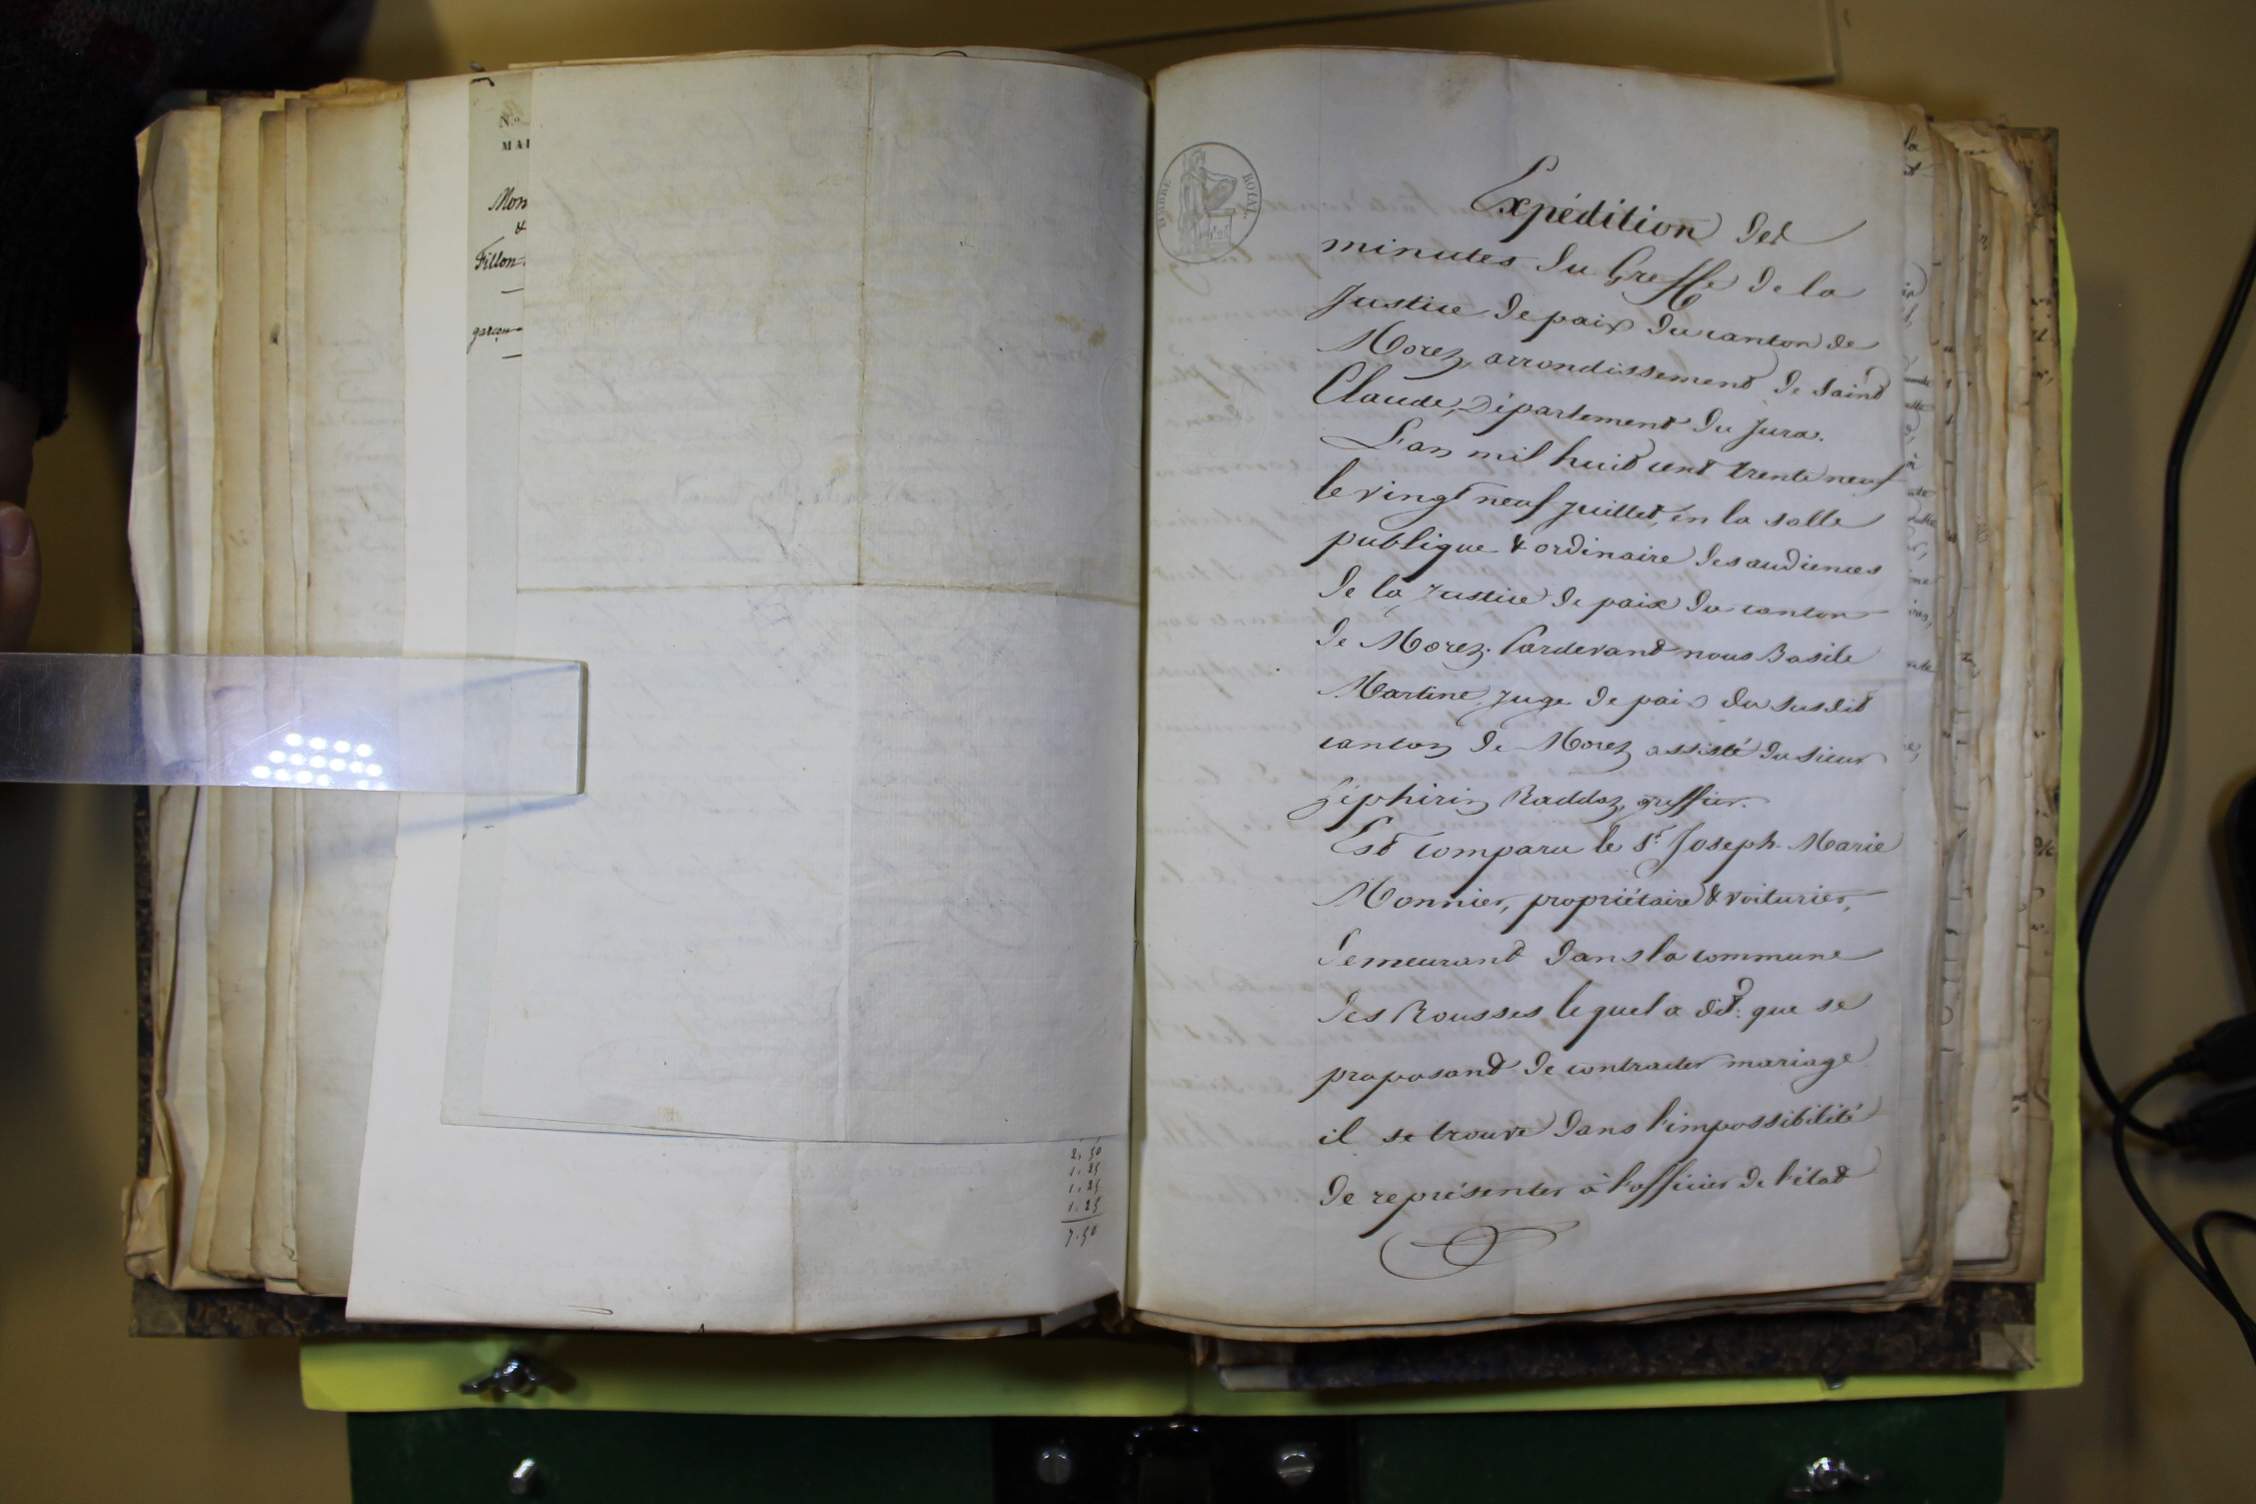 N.°
MAI
Mon
&
Fillon
garçon
2.50
1.25
1.25
1.25
7.50
TIMBRE ROYAL
Expédition des
minutes du Greffe de la
Justice de paix du canton de
Morez, arrondissement de Saint
Claude, Département du Jura.
L'an mil huit cent trente neuf
le vingt neuf juillet, en la salle
publique & ordinaire des audiences
de la Justice de paix du canton
de Morez. Pardevant nous Basile
Martine, juge de paix du susdit
canton de Morez assisté du sieur
Zéphirin Raddaz, greffier.
Est comparu le Sr. Joseph-Marie
Monnier, propriétaire & voiturier,
demeurant dans la commune
des Rousses lequel a dit: que se
proposant de contracter mariage
il se trouve dans l'impossibilité
de représenter à l'officier de l'état